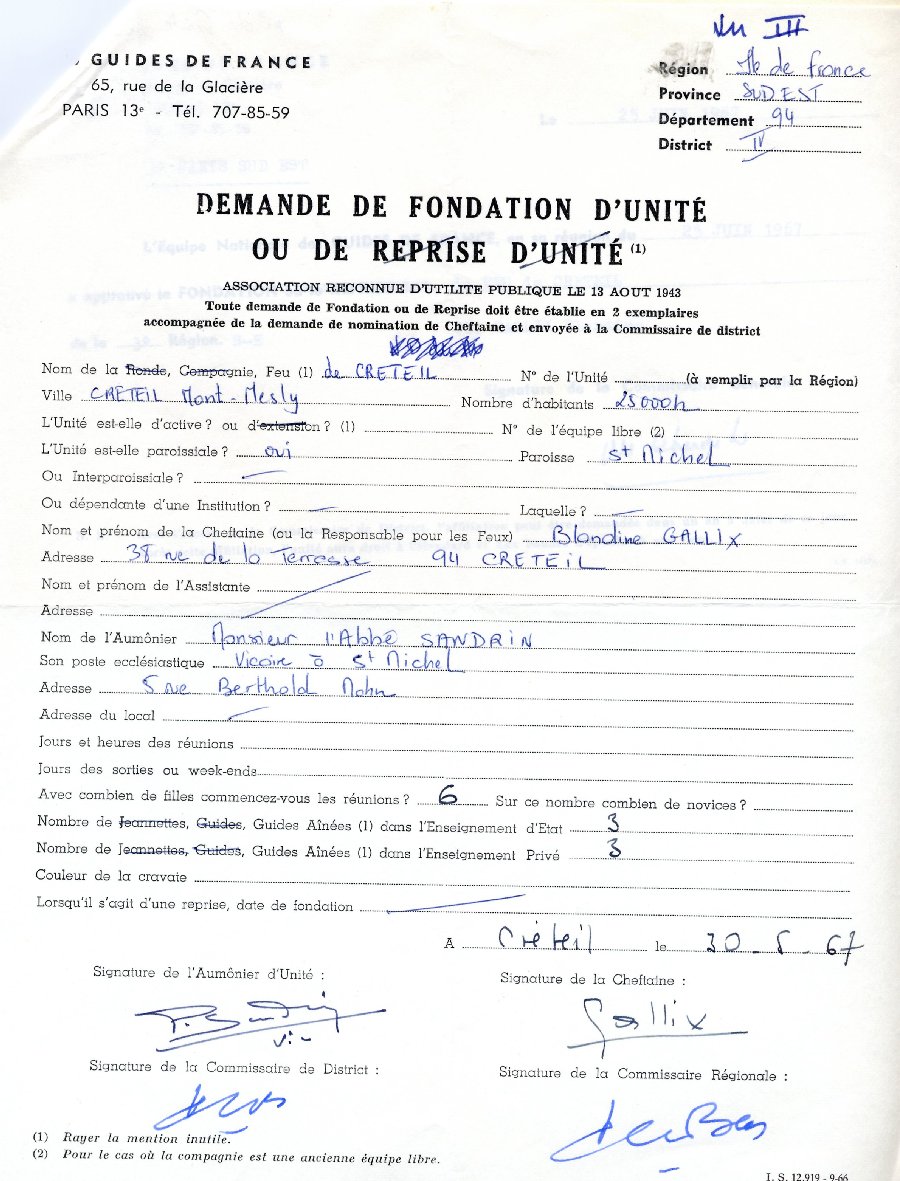 Vu III
GUIDES DE FRANCE
65, rue de la Glacière
PARIS 13e - Tél. 707-85-59
Région Ile de France
Province SUD EST
Département 94
District IV
DEMANDE DE FONDATION D'UNITÉ
OU DE REPRISE D'UNITÉ (1)
ASSOCIATION RECONNUE D'UTILITE PUBLIQUE LE 13 AOUT 1943
Toute demande de Fondation ou de Reprise doit être établie en 2 exemplaires
accompagnée de la demande de nomination de Cheftaine et envoyée à la Commissaire de district
Nom de la Ronde, Compagnie, Feu (1) de CRETEIL N° de l'Unité (à remplir par la Région)
Ville CRETEIL Mont-Mesly Nombre d'habitants 25000h
L'Unité est-elle d'active ? ou d'extension ? (1) N° de l'équipe libre (2)
L'Unité est-elle paroissiale ? oui Paroisse St Michel
Ou Interparoissiale ? —
Ou dépendante d'une Institution ? — Laquelle ? —
Nom et prénom de la Cheftaine (ou la Responsable pour les Feux) Blandine GALLIX
Adresse 38 rue de la Terrasse 94 CRETEIL
Nom et prénom de l'Assistante
Adresse
Nom de l'Aumônier Monsieur l'Abbé SANDRIN
Son poste ecclésiastique Vicaire à St Michel
Adresse 5 rue Berthold Mahn
Adresse du local —
Jours et heures des réunions
Jours des sorties ou week-ends
Avec combien de filles commencez-vous les réunions ? 6 Sur ce nombre combien de novices ?
Nombre de Jeannettes, Guides, Guides Aînées (1) dans l'Enseignement d'Etat 3
Nombre de Jeannettes, Guides, Guides Aînées (1) dans l'Enseignement Privé 3
Couleur de la cravate
Lorsqu'il s'agit d'une reprise, date de fondation —
A Créteil le 30-5-67
Signature de l'Aumônier d'Unité :
Signature de la Cheftaine :
Gallix
Signature de la Commissaire de District :
Signature de la Commissaire Régionale :
(1) Rayer la mention inutile.
(2) Pour le cas où la compagnie est une ancienne équipe libre.
I. S. 12.919 - 9-66